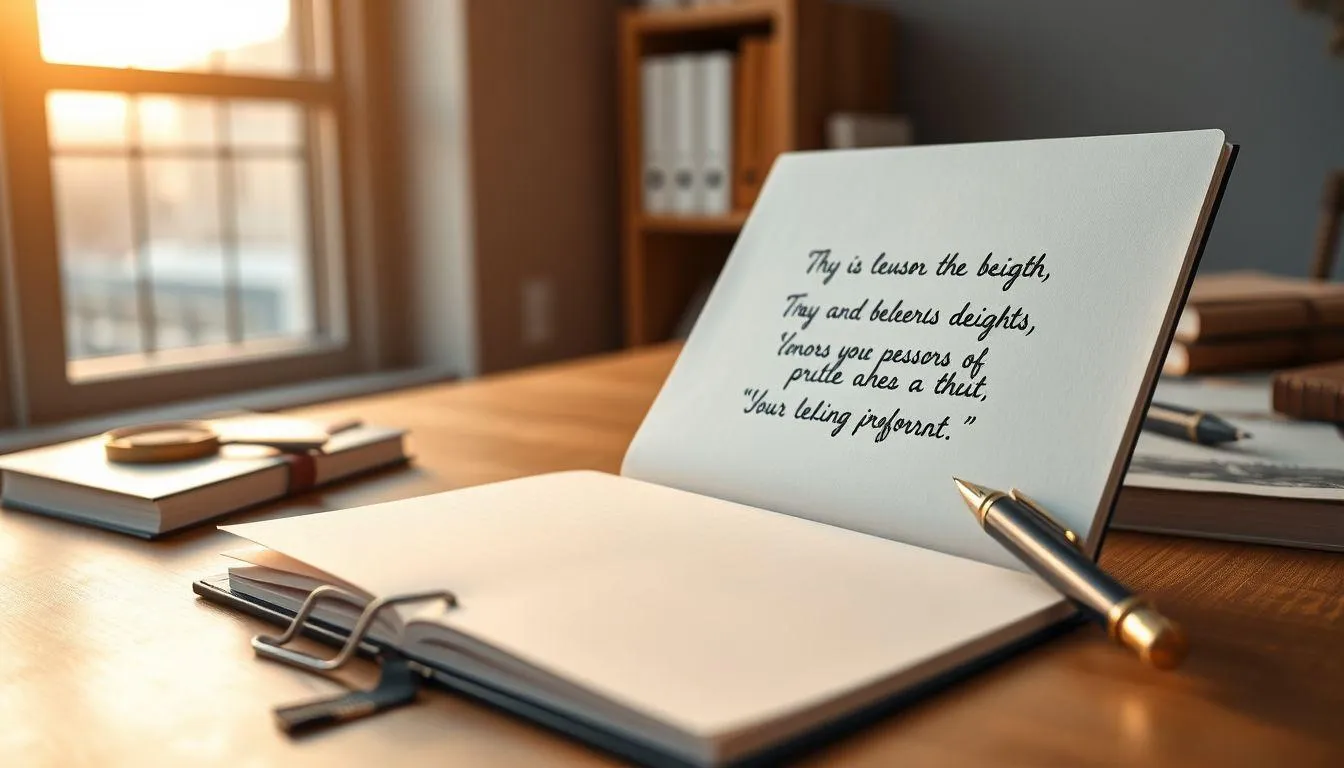 Thy is leusor the beigth,
Tray and beleeris deights,
'Yonors you pessors of
prittle ahes a thiit,
"Your leking jrgforrnt."